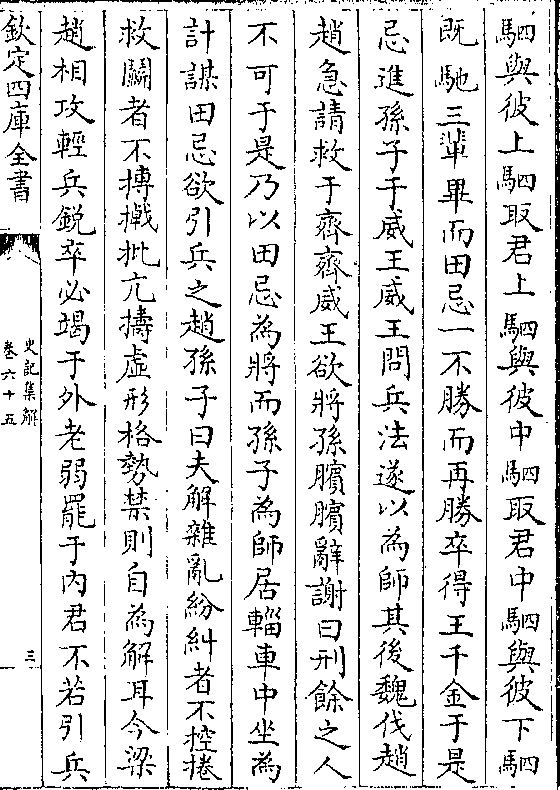 駟與彼上駟取君上駟與彼中駟取君中駟與彼下駟
旣馳三軰畢而田忌一不勝而再勝卒得王千金于是
忌進孫子于威王威王問兵法遂以為師其後魏伐趙
趙急請救于齊齊威王欲將孫臏臏辭謝曰刑餘之人
不可于是乃以田忌為將而孫子為師居輜車中坐為
計謀田忌欲引兵之趙孫子曰夫解雜亂紛糾者不控捲
救鬭者不搏撠批亢擣虛形格勢禁則自為解耳今梁
趙相攻輕兵銳卒必竭于外老弱罷于內君不若引兵
欽定四庫全書
史記集解
卷六十五
三